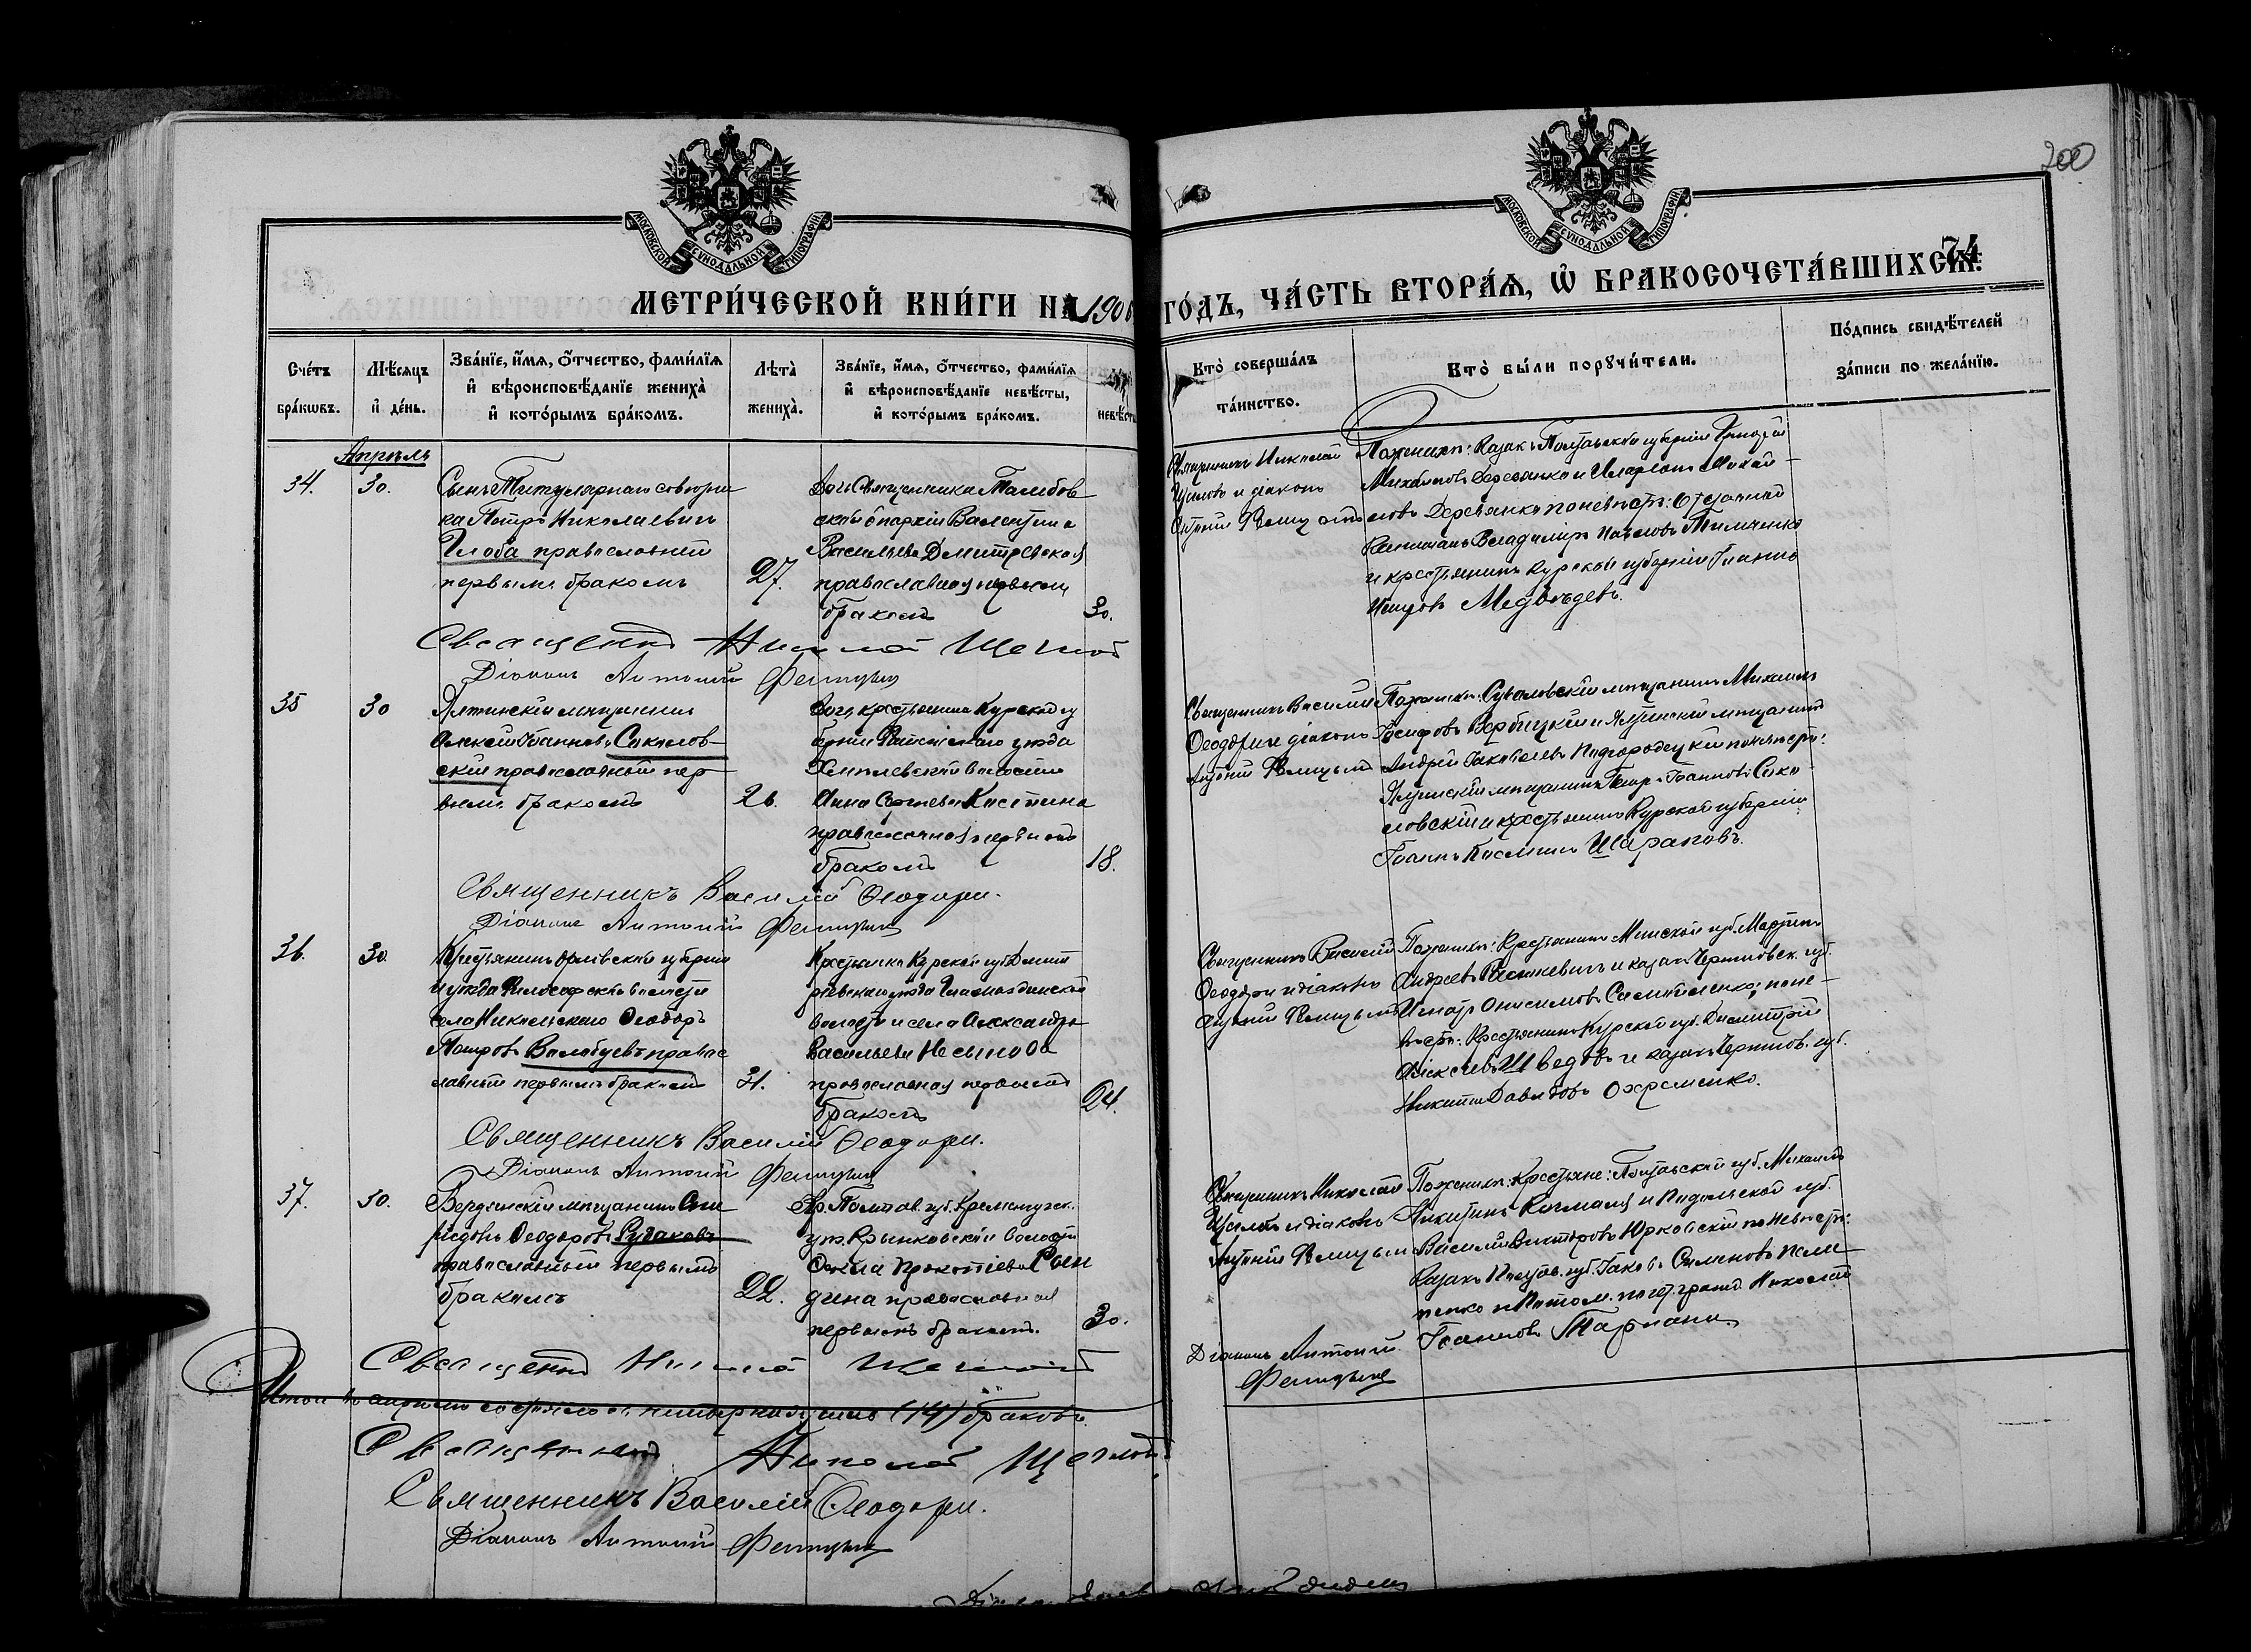 200
МОСКОВСКОЙ СѴНОДАЛЬНОЙ ТИПОГРАФІИ
МОСКОВСКОЙ СѴНОДАЛЬНОЙ ТИПОГРАФІИ
74
МЕТРИ́ЧЕСКОЙ КНИ́ГИ НА 190
ГО́ДЪ, ЧА́СТЬ ВТОРА́Я, Ѡ҆ БРАКОСОЧЕТА́ВШИХСЯ:
Сче́тъ бра́кѡвъ.
Мѣ́сяцъ и҆ де́нь.
Зва́нїе, и҆́мя, ѻ҆́тчество, фами́лїя и҆ вѣроисповѣ́данїе жениха̀ и҆ кото́рымъ бра́комъ.
Лѣ́та жениха̀.
Зва́нїе, и҆́мя, ѻ҆́тчество, фами́лїя и҆ вѣроисповѣ́данїе невѣ́сты, и҆ кото́рымъ бра́комъ.
невѣ́сты
Кто̀ соверша́лъ та́инство.
Кто̀ бы́ли порꙋчи́тели.
По́дпись свидѣ́телей за́писи по жела́нїю.
Апрѣль
34.
30.
Сынъ Титулярнаго совѣтни
ка Петръ Николаевичъ
Глоба православный
первымъ бракомъ
27.
Дочь Священника Тамбов
ской епархіи Валентина
Васильева Дмитревская
православная первымъ
бракомъ
30.
Священникъ Николай
Щегловъ и діаконъ
Антоній
По женихѣ: Казакъ Полтавской губерніи
Михайловъ Деревянко и Иларіонъ Михай-
ловъ Деревянко по невѣстѣ: Отставной
Капитанъ Владиміръ Павловъ Тимченко
и крестьянинъ Курской губерніи Іоаннъ
Медвѣдевъ.
Священникъ Николай Щегловъ
Діаконъ Антоній
35
30
Ялтинскій мѣщанинъ
Алексій Іоанновъ Соколов-
скій православный пер
вымъ бракомъ
26.
Дочь крестьянина Курской гу
берніи уѣзда
волости
Анна Сергѣева Костина
православная первымъ
бракомъ
18.
Священникъ Василій
Ѳеодори и діаконъ
Антоній
По женихѣ: мѣщанинъ Михаилъ
Іосифовъ Вербицкій и Ялтинскій мѣщанинъ
Андрей Іаковлевъ Подгородецкій по невѣстѣ:
Ялтинскій мѣщанинъ Петръ Іоанновъ Соко-
ловскій и крестьянинъ Курской губерніи
Іоаннъ Шараповъ.
Священникъ Василій Ѳеодори.
Діаконъ Антоній
36.
30.
Крестьянинъ Орловской губерніи
и уѣзда волости
села Никольскаго Ѳеодоръ
Петровъ православ
славный первымъ бракомъ
31.
Крестьянка Курской губ. Дмит
ріевскаго уѣзда
волости и села Александра
Васильева
православная первымъ
бракомъ
24.
Священникъ Василій
Ѳеодори и діаконъ
Антоній
По женихѣ: Крестьянинъ Минской губ. Мартинъ
Андреевъ и казакъ Черниговск. губ.
Игнатъ Онисимовъ Самойленко; по не-
вѣстѣ: Крестьянинъ Курской губ. Димитрій
Алексѣевъ Шведовъ и казакъ Чернигов. губ.
Никита Давидовъ Охременко.
Священникъ Василій Ѳеодори.
Діаконъ Антоній
37.
30.
Бердянскій мѣщанинъ Спи
ридонъ Ѳеодоровъ
православный первымъ
бракомъ
22.
Кр. Полтав. губ. Кременчугск.
уѣз. Крюковской волости
Прокопіева
дина православная
первымъ бракомъ.
30.
Священникъ Николай
Щегловъ и діаконъ
Антоній
По женихѣ: Крестьяне: Полтавской губ. Михаилъ
Никитинъ и Подольской губ.
Василій Викторовъ Юрковскій по невѣстѣ:
Казакъ Полтав. губ. Іаковъ Симеоновъ
и Потом. почет. гражд. Николай
Іоанновъ
Діаконъ Антоній
Священникъ Николай Щегловъ
Итого въ апрѣлѣ состоялось четырнадцать (14) браковъ.
Священникъ Николай Щегловъ
Священникъ Василій Ѳеодори.
Діаконъ Антоній